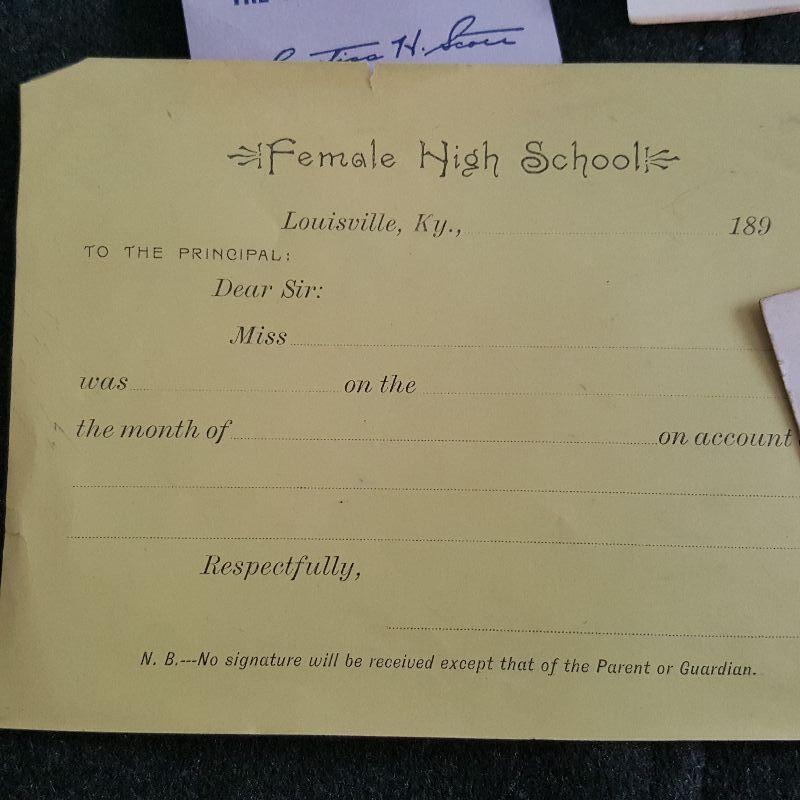 THE
H. Scott
Female High School
Louisville, Ky., 189
TO THE PRINCIPAL:
Dear Sir:
Miss
was on the
the month of on account
Respectfully,
N. B.---No signature will be received except that of the Parent or Guardian.